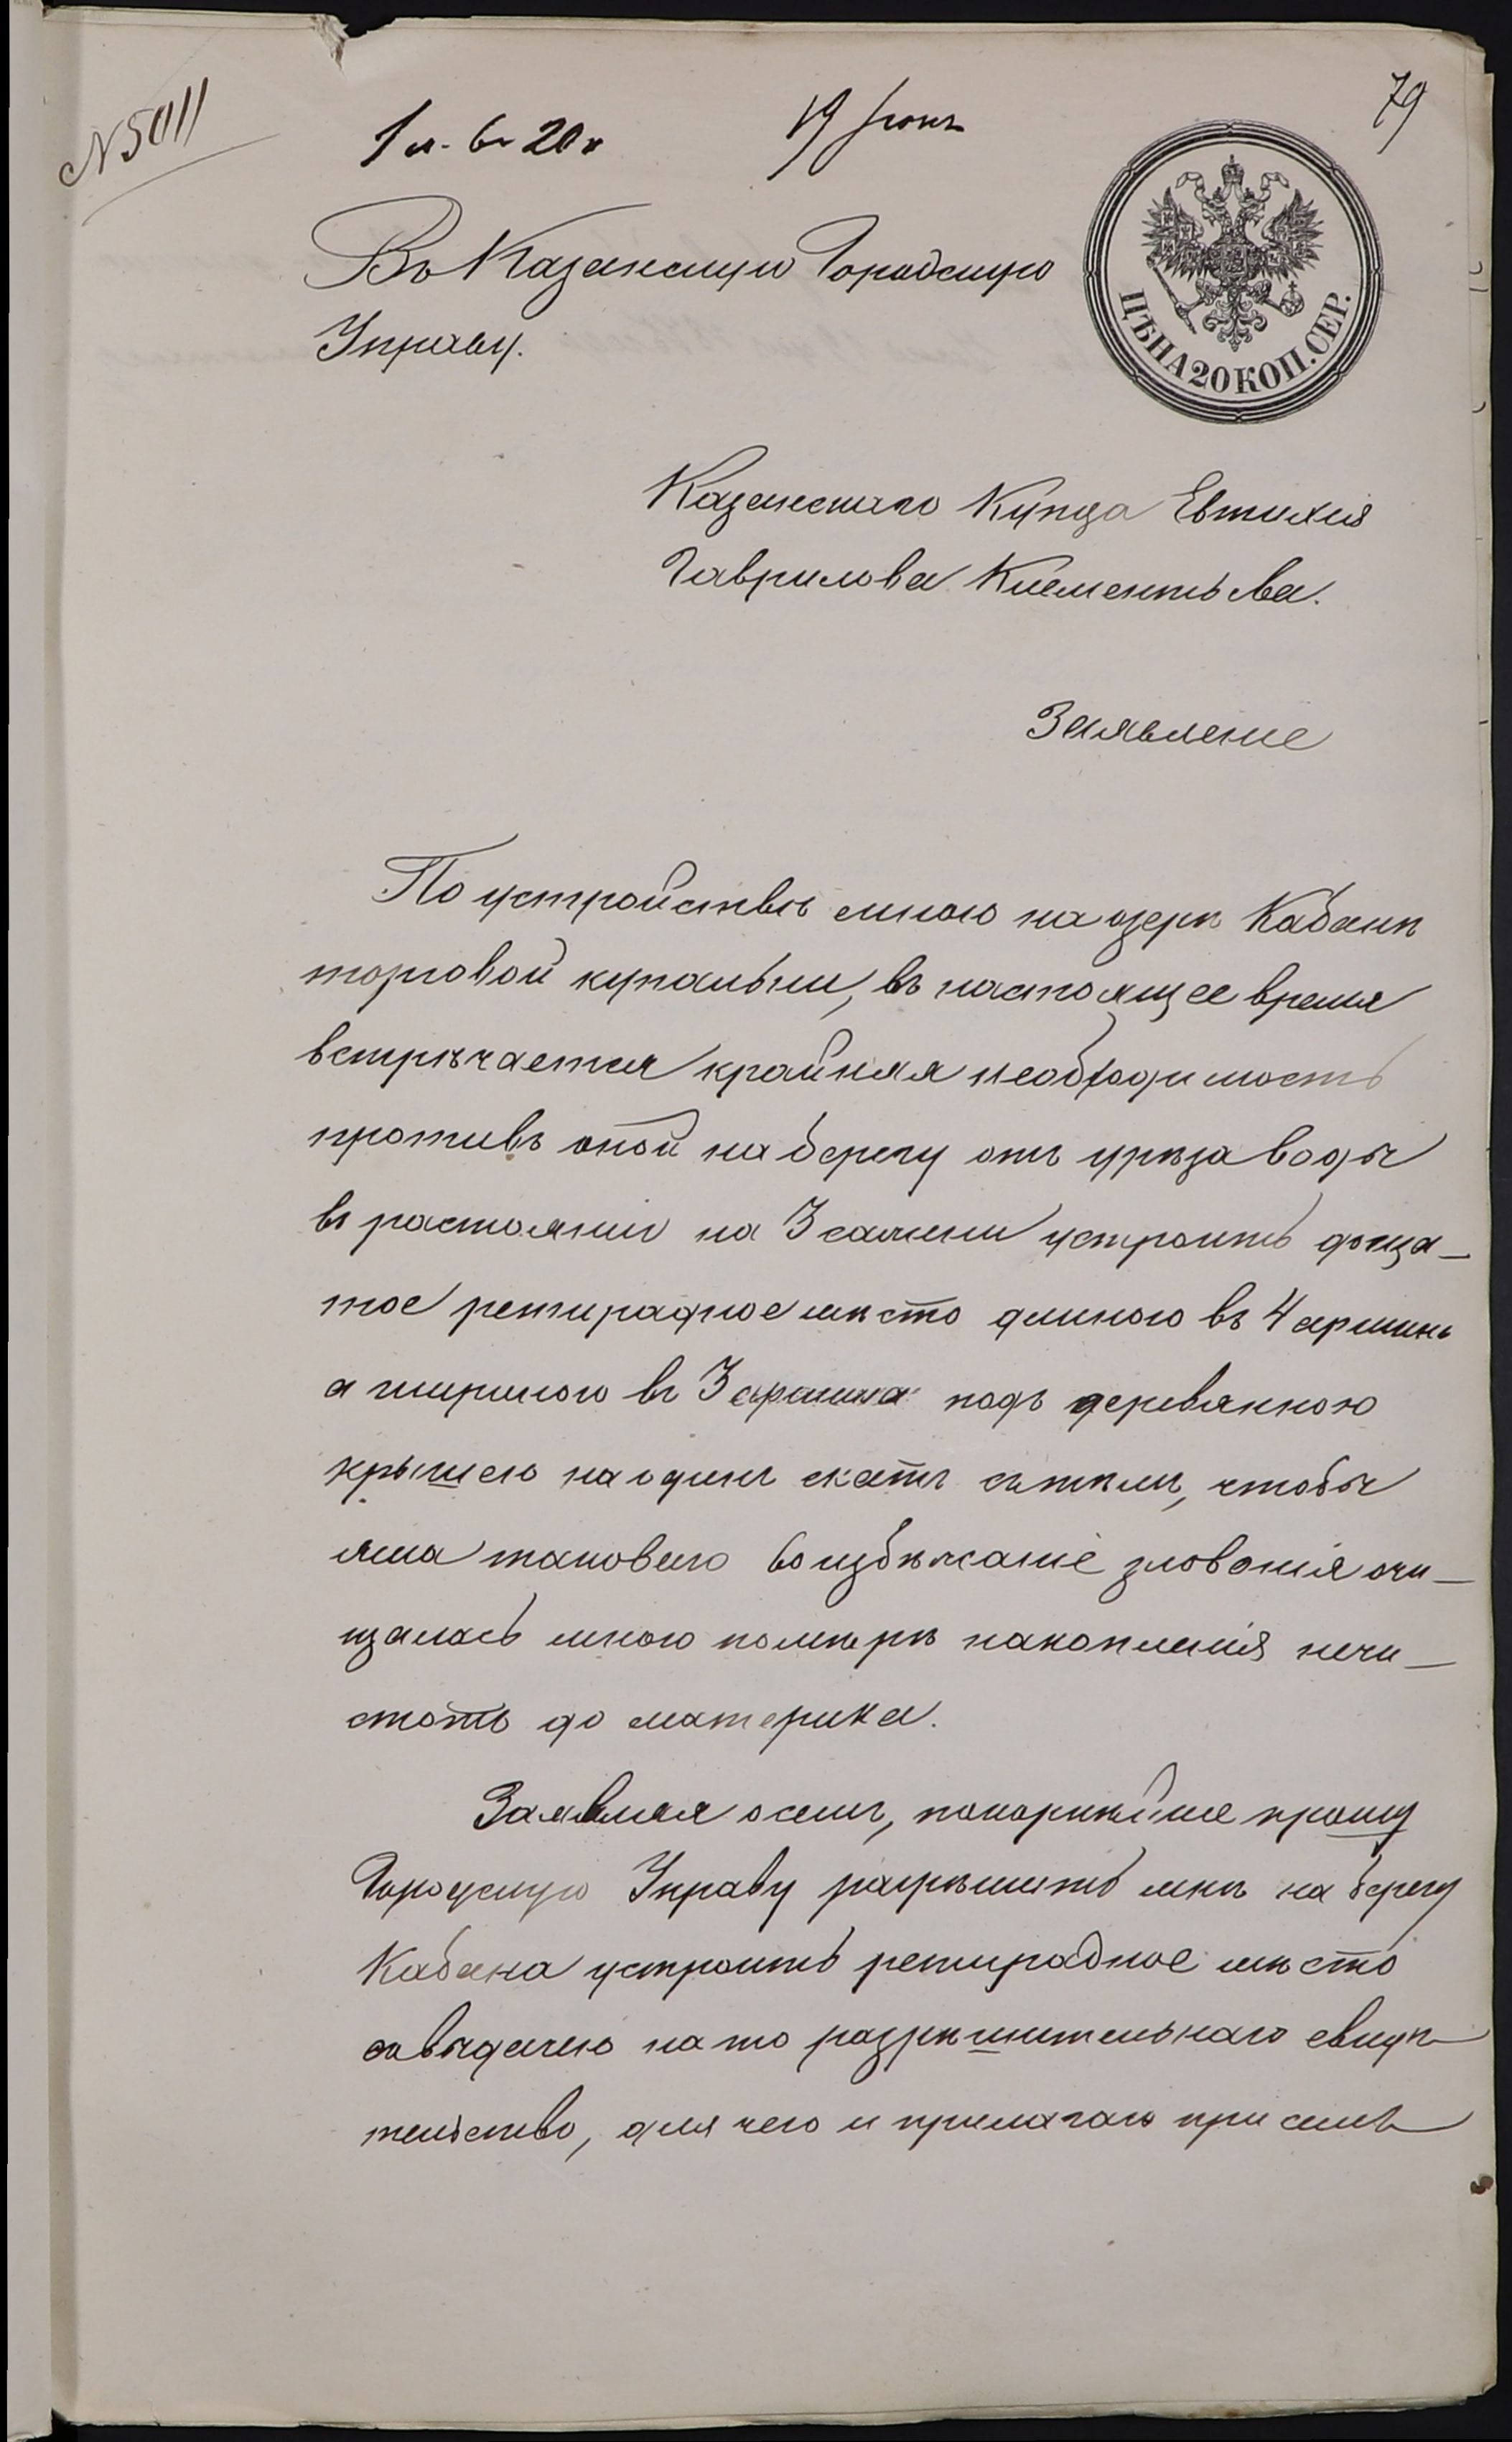 N 5011
1 м. в 20 к
19 Іюня
79
Въ Казанскую Городскую
Управу.
ЦѢНА 20 КОП. СЕР.
Казанскаго Купца Евтихія
Гаврилова Климентьева.
Заявленіе
По устройствѣ мною на озерѣ Кабанѣ
торговой купальни, въ настоящее время
встрѣчается крайняя необходимость
противъ оной на берегу отъ урѣза воды
въ растояніи на 3 сажени устроить доща-
тое ретирадное мѣсто длиною въ 4 аршинъ
а шириною въ 3 аршина подъ деревянною
крышею на одинъ скатъ съ тѣмъ, чтобы
яма таковаго во избѣжаніе зловонія очи-
щалась мною по мѣрѣ накопленія нечи-
стотъ до материка.
Заявляя о семъ, покорнѣйше прошу
Городскую Управу разрѣшить мнѣ на берегу
Кабана устроить ретирадное мѣсто
съ выдачею на то разрѣшительнаго свидѣ-
тельство, для чего и прилагаю при семъ